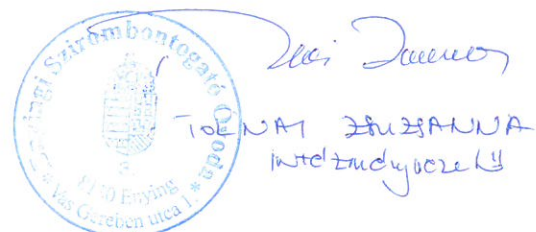 Enyingi Szirombontogató Óvoda
8130 Enying
Vas Gereben utca 1.
TOLNAI ZSUZSANNA
intézményvezető